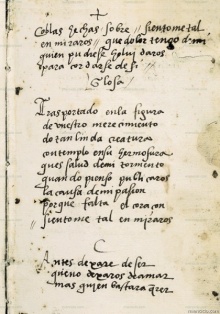 coblas hechas sobre // sientome tal
en miraros // que dolor tengo de mi
quien pudiese
para
Glosa
trasportado en la figura
de vuestro merecimiento
de tan linda creatura
contemplo en su hermosura
ques salud de mi tormento
quando pienso publicaros
la causa de mi pasion
porque falta el coraçon
sientome tal en miraros
Antes dexare de ser
que no dexaros de amar
mas quien bastara